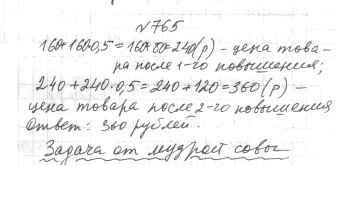 №765
160+160·0,5=160+80=240(р) - цена това-
ра после 1-го повышения;
240+240·0,5=240+120=360(р) -
цена товара после 2-го повышения
Ответ: 360 рублей.
Задача от мудрой совы